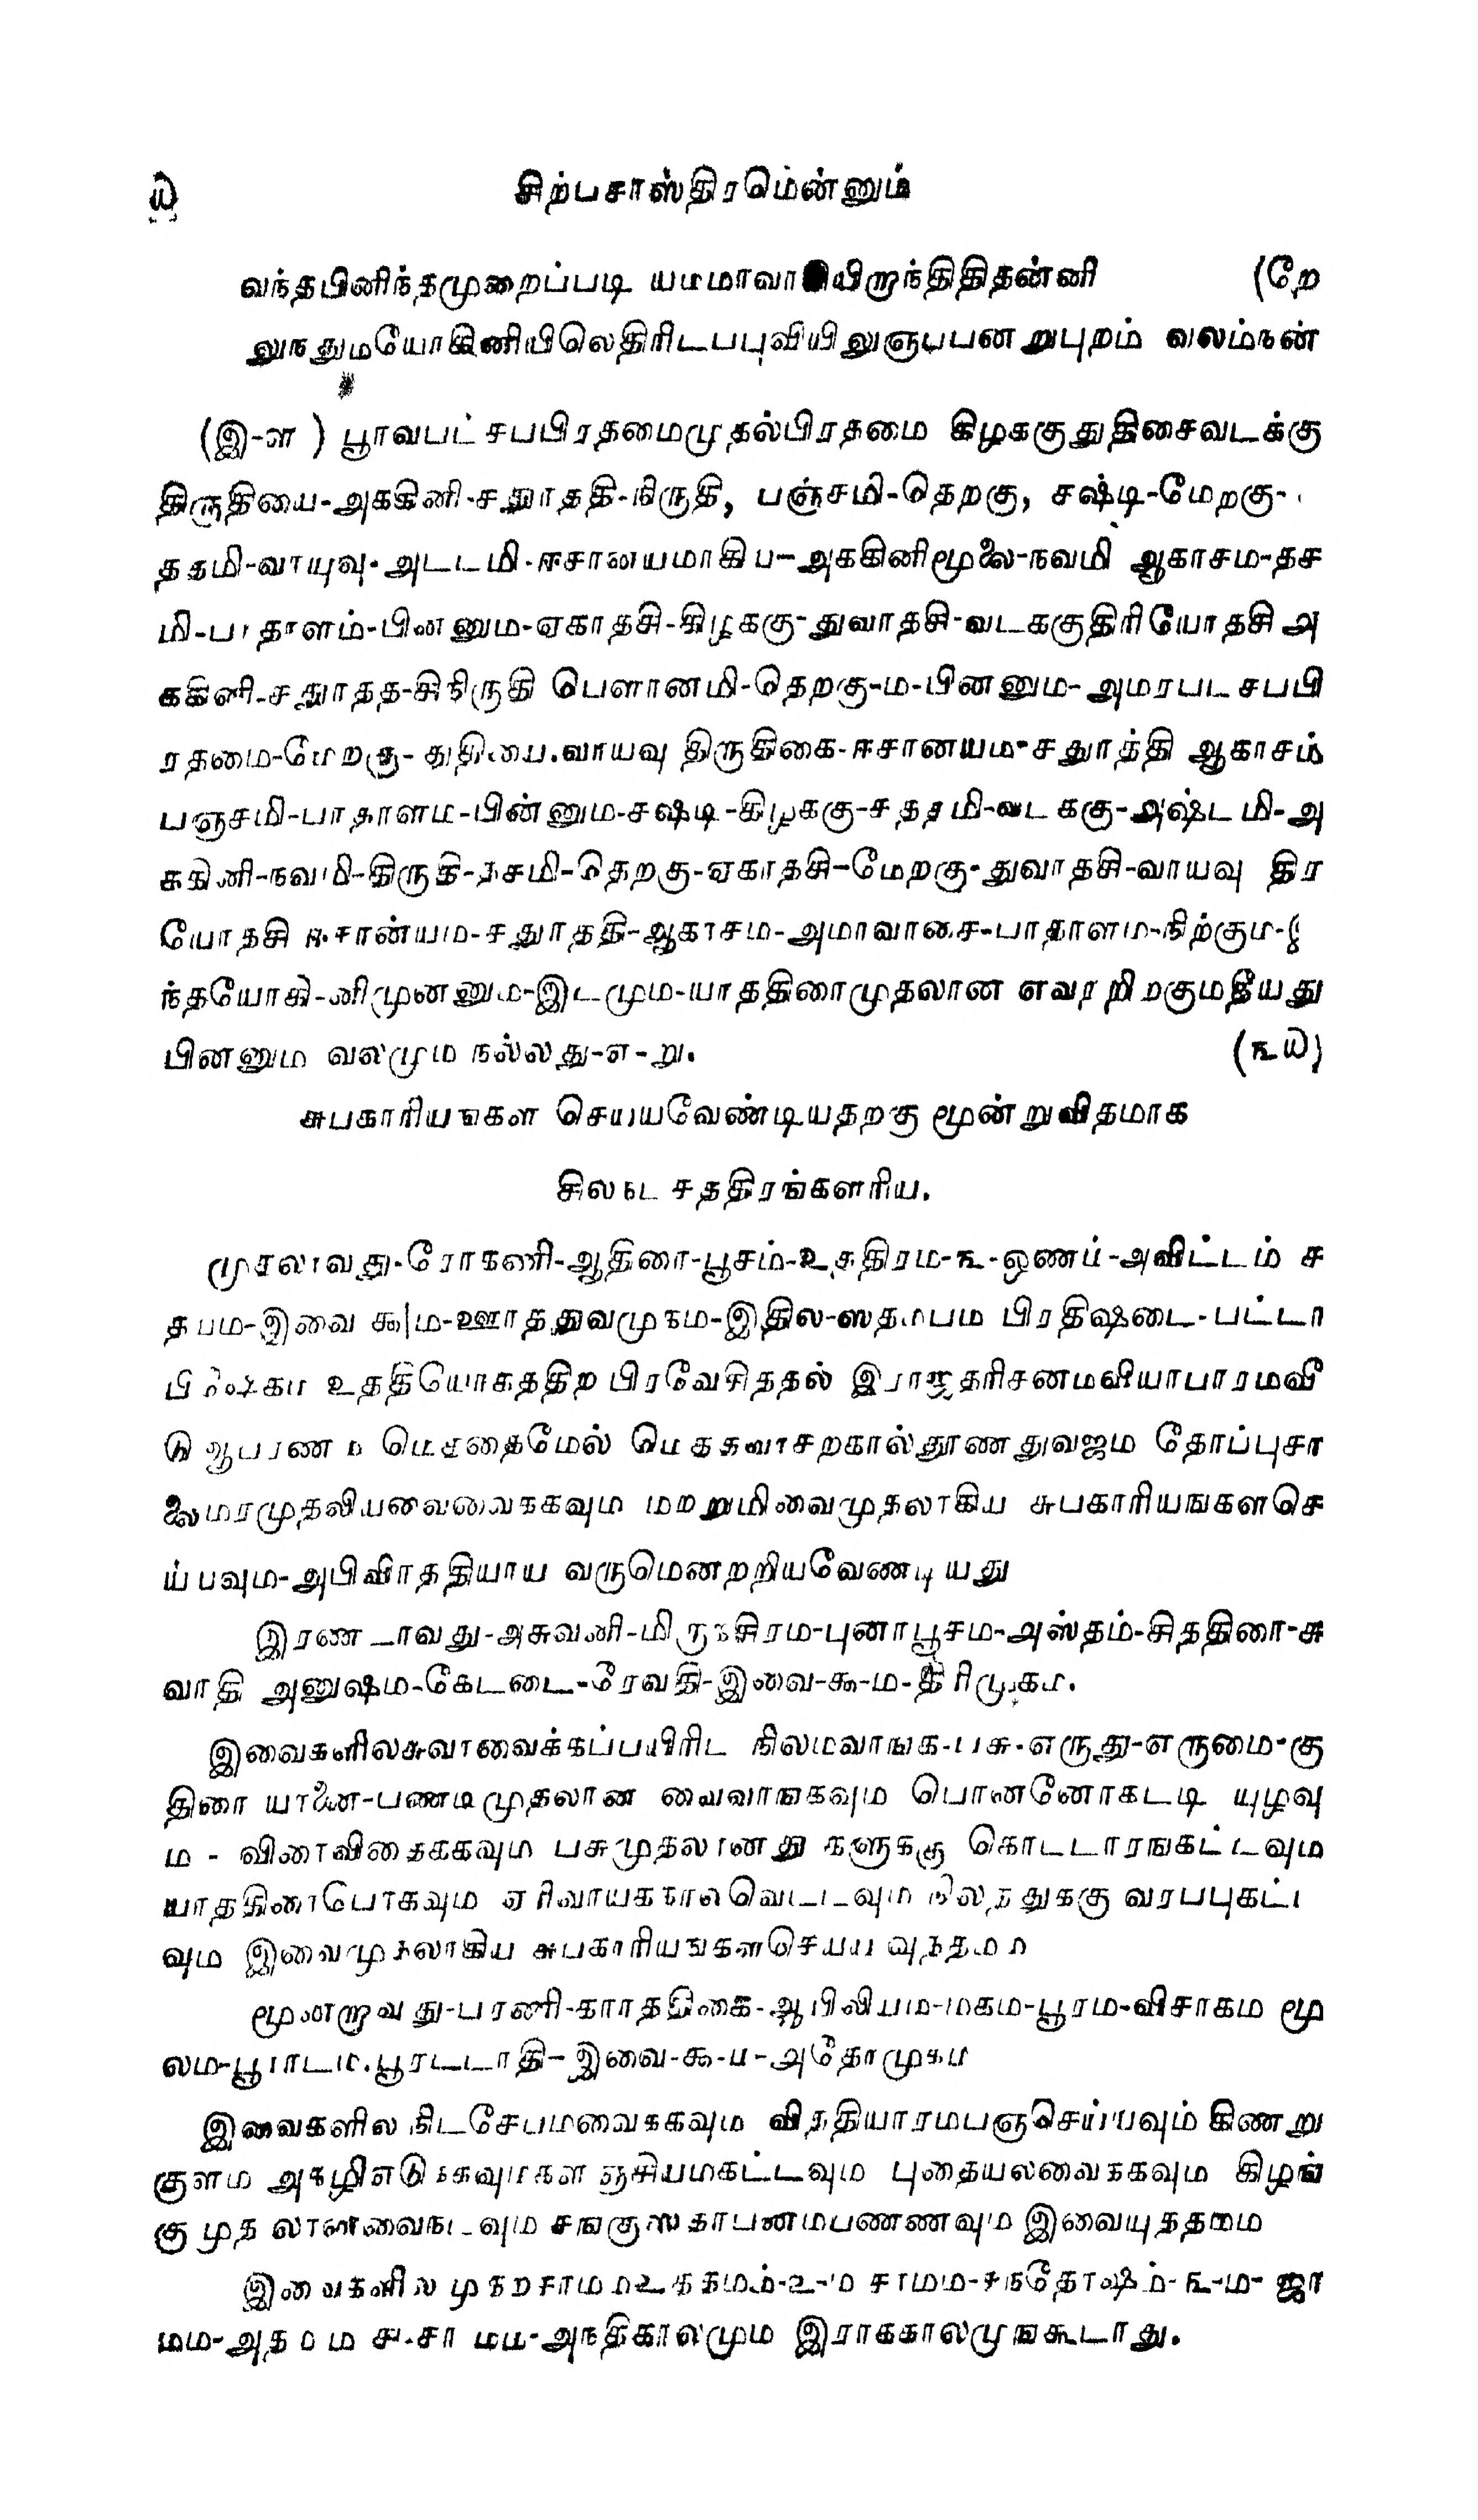 ய சிற்பசாஸ்திரமென்னும்
வந்தபினிந்தமுறைப்படி யமமாவாசியிறுந்திதிதன்னி (றே
லுநதுமயோகினியிலெதிரிடபபுவியிலுஞபபனறுபுறம் வலம்நன்
(இ-ள ) பூாவபட்சபபிரதமைமுதல்பிரதமை கிழககுதுதிசைவடக்கு
திருதியை-அககினி-சதுாததி-நிருதி, பஞ்சமி-தெறகு, சஷ்டி-மேறகு-
ததமி-வாயுவு-அடடமி-ஈசானயமாகிப-அககினிமூலை-நவமி ஆகாசம-தச
மி-பாதாளம்-பினனும-ஏகாதசி-கிழககு-துவாதசி-வடககுதிரியோதசி அ
ககினி-சதுாதத-சிநிருதி பௌானமி-தெறகு-ம-பினனும-அமரபடசபபி
ரதமை-மேறகு-துதியை.வாயவு திருதிகை-ஈசானயம-சதுாத்தி ஆகாசம்
பஞசமி-பாதாளம-பின்னும-சஷடி-கிழககு-சததமி-வடககு-அஷ்டமி-அ
ககினி-நவமி-நிருதி-தசமி-தெறகு-ஏகாதசி-மேறகு-துவாதசி-வாயவு திர
யோதசி ஈசான்யம-சதுாததி-ஆகாசம-அமாவாசை-பாதாளம-நிற்கும-இ
ந்தயோகி-னிமுனனும-இடமும-யாததிரைமுதலான எவரறிறகுமதீயது
பினனும வலமும நல்லது-எ-று. (௩ய)
சுபகாரியஙகள செயயவேண்டியதறகு மூன்றுவிதமாக
சிலநட சததிரங்களரிய.
முதலாவது-ரோகணி-ஆதிரை-பூசம்-உததிரம-௩-ஓணம்-அவிட்டம் ச
தபம-இவை ௯|ம-ஊாததுவமுகம-இதில-ஸதமபம பிரதிஷடை-பட்டா
பிஷேகம உததியோகததிற பிரவேசிததல் இராஜதரிசனமவியாபாரமவீ
டு ஆபரணம மெததைமேல் மெததவாசறகால்தூணதுவஜம தோப்புசா
லைமரமுதலியவைவைககவும மறறுமிவைமுதலாகிய சுபகாரியஙகளசெ
ய்பவும-அபிவிாததியாய வருமெனறறியவேணடியது
இரணடாவது-அசுவனி-மிருகசிரம-புனாபூசம-அஸ்தம்-சிததிரை-சு
வாதி அனுஷம-கேடடை-ரேவதி-இவை-௯-ம-திரிமுகம.
இவைகளிலசுவாவைக்கப்பயிரிட நிலமவாஙக-பசு-எருது-எருமை-கு
திரை யானை-பணடிமுதலான வைவாஙகவும பொனனோகடடி யுழவு
ம - விரைவிதைககவும பசுமுதலானது களுககு கொடடாரஙகட்டவும
யாததிரைபோகவும ஏரிவாயககாலவெட்டவும நிலத்துககு வரபபுகட்ட
வும இவைமுதலாகிய சுபகாரியஙகளசெயய வுத்தமம
மூனறாவது-பரணி-காாததிகை-ஆயிலியம-மகம-பூரம-விசாகம மூ
லம-பூராடம.பூரடடாதி-இவை-௯-ம-அதோமுகம
இவைகளில நிடசேபமவைககவும விததியாரமபஞசெய்யவும் கிணறு
குளம அகழிஎடுககவுமகள ஞசியமகட்டவும புதையலவைககவும கிழங
கு முத லானவைநடவும சஙகுஸதாபனமபணணவும இவையுததமம
இவைகளில முதறசாமமஉததமம்-உ-ம சாமம-சநதோஷம்-௩-ம- ஜா
மம-அதமம ச-சா மம-அநதிகாலமும இராககாலமுஙகூடாது.